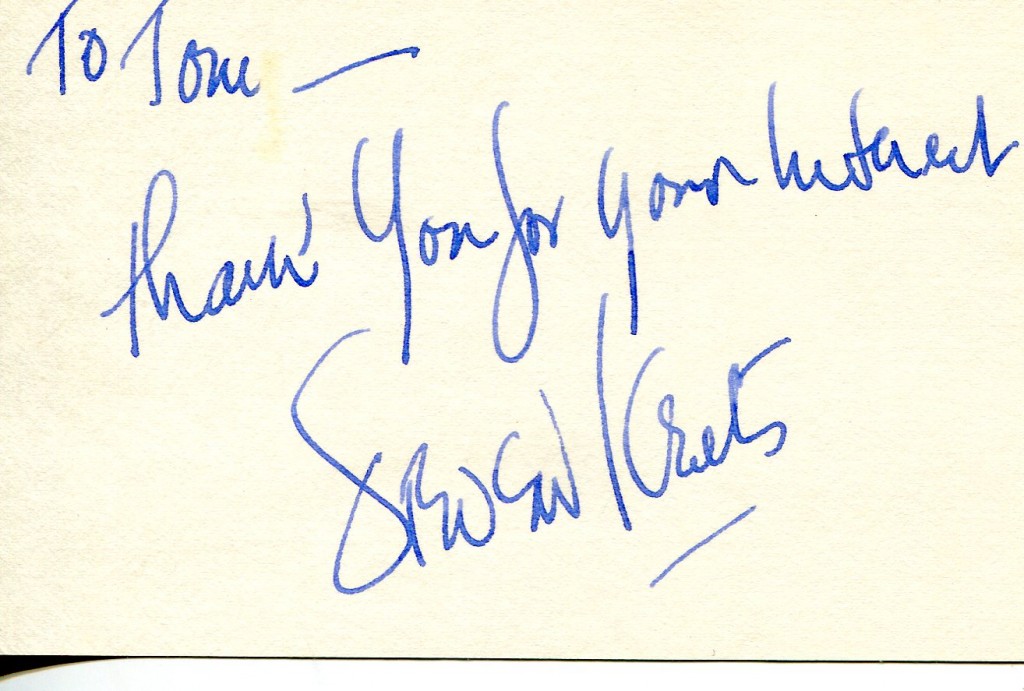 To Tom —
Thank You for your Interest
Steven Keats